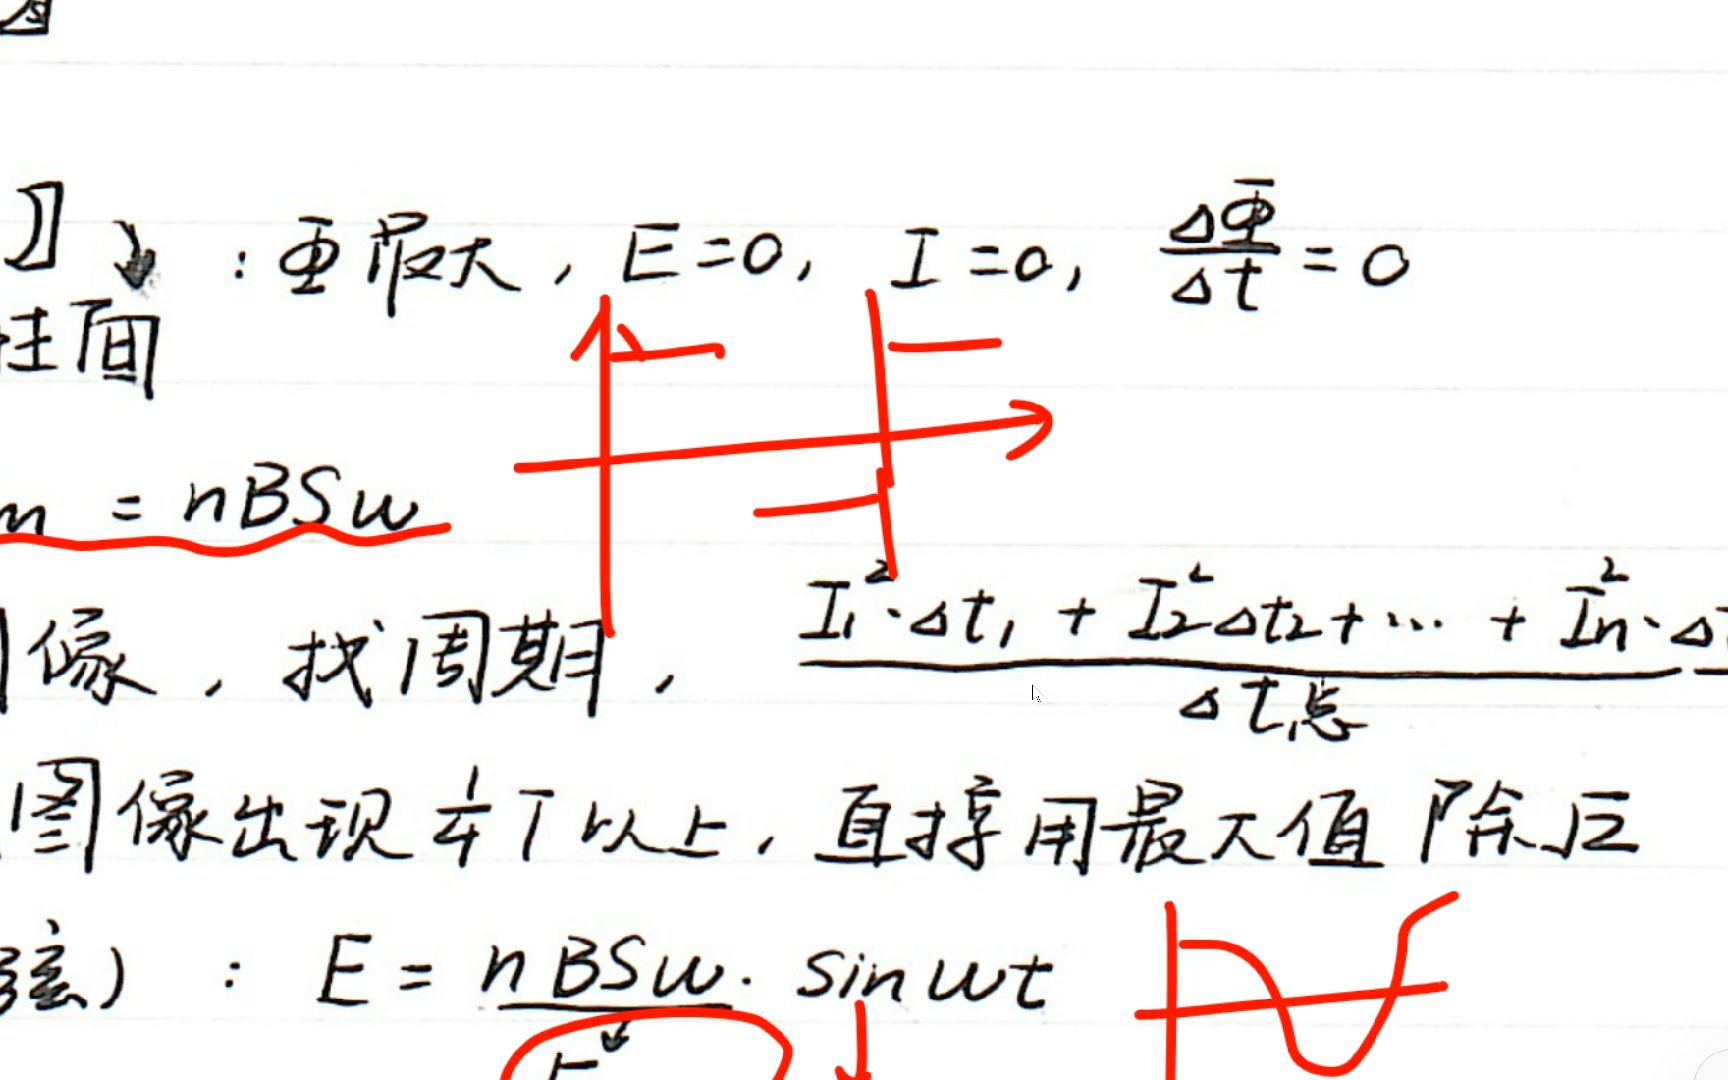 ：Φ最大，E=0，I=0，ΔΦ/Δt=0
面
m = nBSω
图像，找周期，(I₁²·Δt₁ + I₂²Δt₂+⋯ + Iₙ²·Δt)/Δt总
图像出现¼T以上，直接用最大值除后
弦）：E = nBSω·sinωt